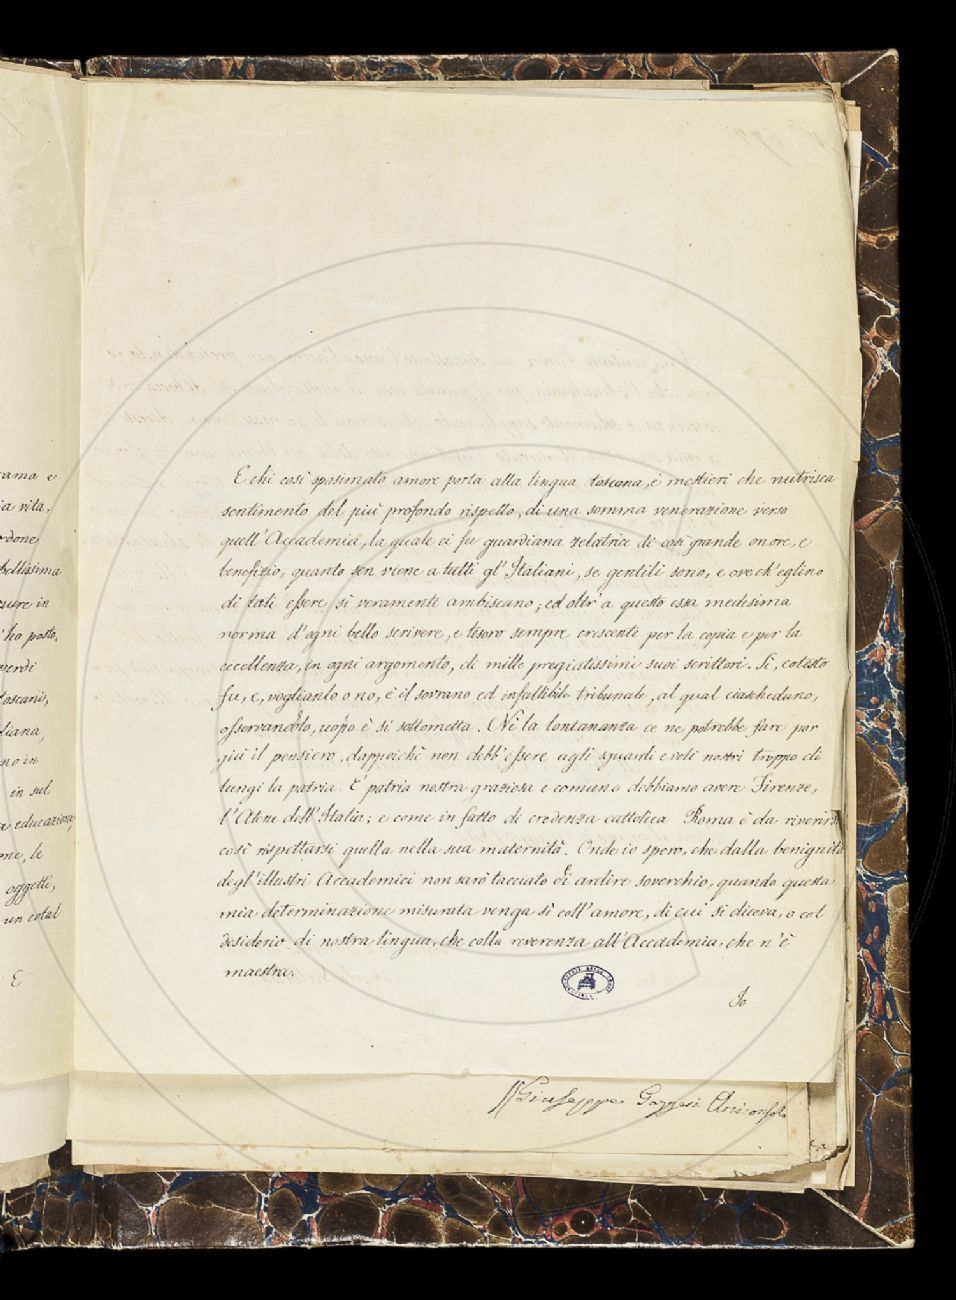 rama e
ia vita,
rdone
bellissima
zure in
'ho posto,
verdi
Toscani,
liana,
no in
in sul
a educazione,
me, le
oggetti,
un cotal
E
E chi così spasimato amore porta alla lingua toscana, è mestieri che nutrisca
sentimento del più profondo rispetto, di una somma venerazione verso
quell'Accademia, la quale ci fu guardiana zelatrice di così grande onore, e
benefizio, quanto sen viene a tutti gl'Italiani, se gentili sono, e ove ch'eglino
di tali essere si veramente ambiscano; ed oltr'a questo essa medesima
norma d'ogni bello scrivere, e tesoro sempre crescente per la copia e per la
eccellenza, in ogni argomento, di mille pregiatissimi suoi scrittori. Sì, cotesto
fu, e, voglianlo o no, è il sovrano ed infallibile tribunale, al qual ciascheduno,
osservandolo, uopo è si sottometta. Nè la lontananza ce ne potrebbe fare por
giù il pensiero, dappoichè non debb'essere agli sguardi e voti nostri troppo di
lungi la patria. E patria nostra graziosa e comune debbiamo avere Firenze,
l'Atene dell'Italia; e come in fatto di credenza cattolica Roma è da riverirsi
così rispettarsi quella nella sua maternità. Onde io spero, che dalla benignità
degl'illustri Accademici non sarò tacciato di ardire soverchio, quando questa
mia determinazione misurata venga sì coll'amore, di cui si diceva, o col
desiderio di nostra lingua, che colla reverenza all'Accademia, che n'è
maestra.
Io
Giuseppe Gazzeri Arciconsolo